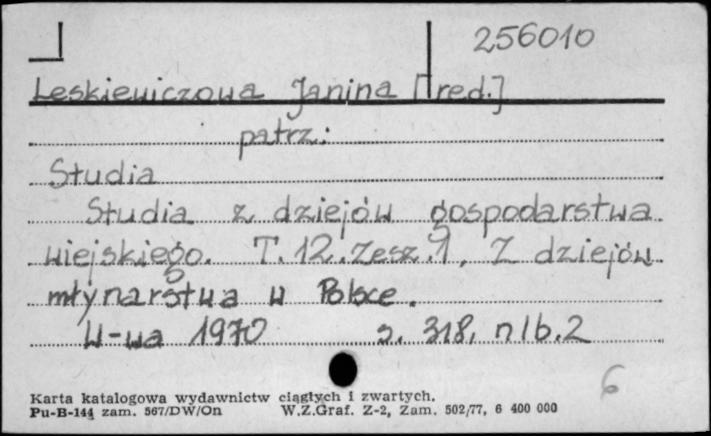 256010
Leskiewiczowa Janina [red.]
patrz:
Studia
Studia z dziejów gospodarstwa
wiejskiego. T. 12. Zesz. 1, Z dziejów
młynarstwa w Polsce.
W-wa 1970 s. 318, nlb. 2
6
Karta katalogowa wydawnictw ciągłych i zwartych.
Pu-B-144 zam. 567/DW/On W.Z.Graf. Z-2, Zam. 502/77, 6 400 000